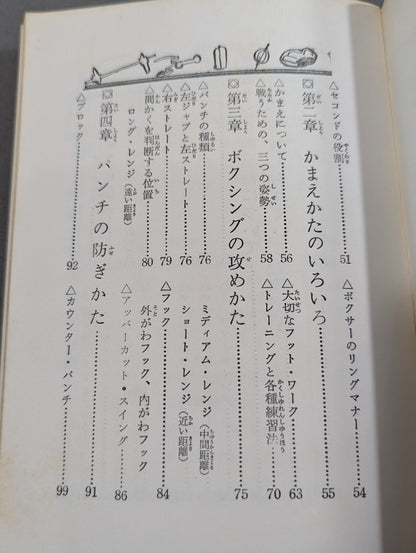 △セコンドの役割……51
△ボクサーのリングマナー……54
◎第二章　かまえかたのいろいろ……55
△かまえについて……56
△戦うための、三つの姿勢……58
△大切なフット・ワーク……63
△トレーニングと各種練習法……70
◎第三章　ボクシングの攻めかた……75
△パンチの種類……76
△左ジャブと左ストレート……76
△右ストレート……79
△間かくを判断する位置……80
ロング・レンジ（遠い距離）
ミディアム・レンジ（中間距離）
ショート・レンジ（近い距離）
△フック……84
外がわフック、内がわフック
△アッパーカット・スイング……86
◎第四章　パンチの防ぎかた……91
△ブロック……92
△カウンター・パンチ……99